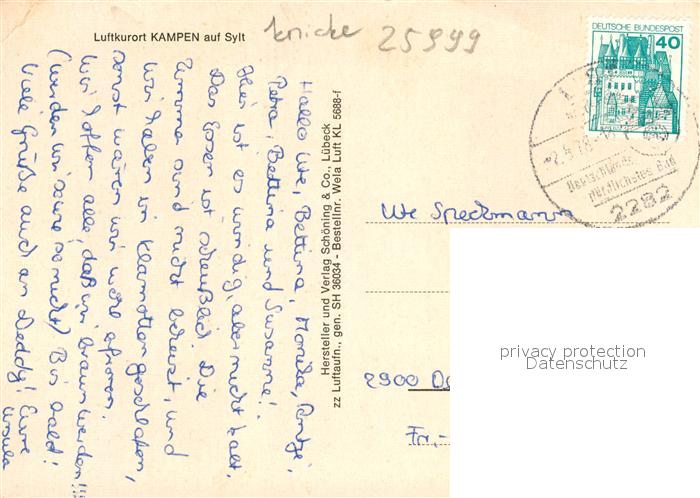 Luftkurort KAMPEN auf Sylt
knicke 25999
DEUTSCHE BUNDESPOST
40
2282
Hallo Ute, Bettina, Monika, Antje,
Petra, Bettina und Susanne!
Hier ist es windig, aber nicht kalt.
Das Essen ist scheußlich. Die
Zimmer sind nicht beheizt, und
wir haben in Klamotten geschlafen,
sonst wären wir wohl erfroren.
Wir hoffen alle, daß wir braun werden!!!
(werden wir sowieso nicht) Bis bald!
Viele Grüße auch an Deddy! Eure
Ursula
Hersteller und Verlag Schöning & Co., Lübeck
zz Luftaufn., gen. SH 36034 - Bestellnr. Wela Luft KL 5688-f
Ute Speckmann
2900
Fr.-
privacy protection
Datenschutz